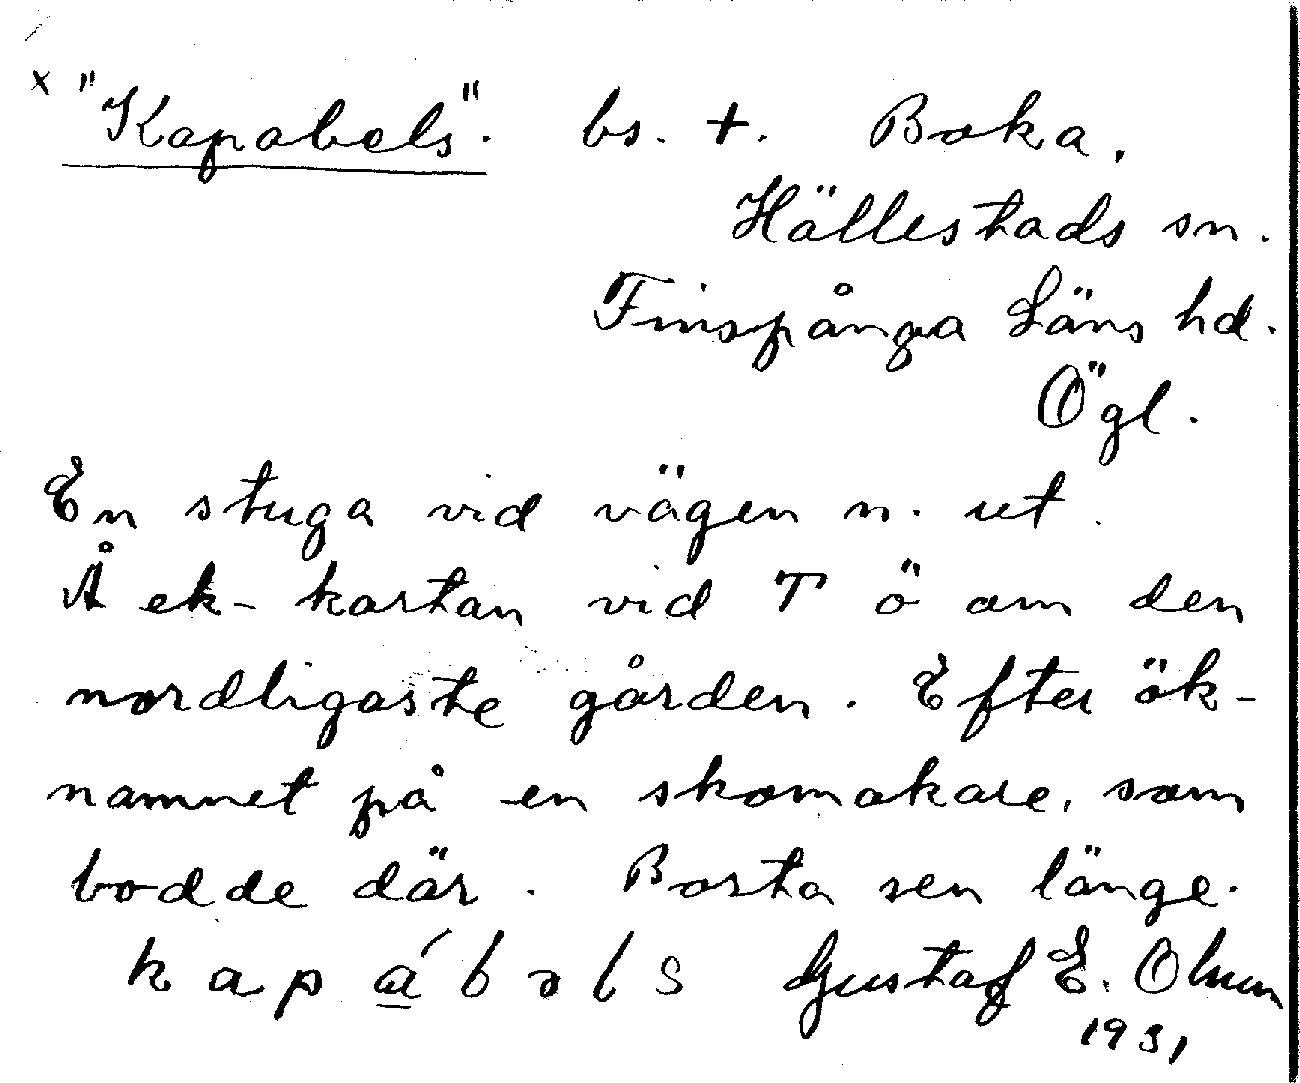 x "Kapabels". bs. +. Boka,
Hällestads sn.
Finspånga Läns hd.
Ögl.
En stuga vid vägen n. ut.
Å ek-kartan vid T ö om den
nordligaste gården. Efter ök-
namnet på en skomakare, som
bodde där. Borta sen länge.
kapábəls Gustaf E. Olsson
1931